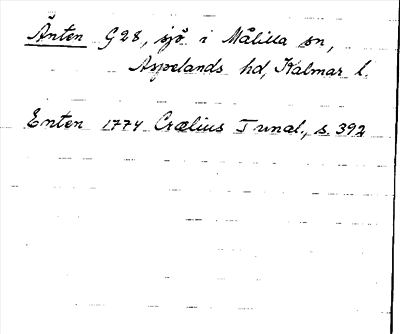 Änten G28, sjö i Målilla sn,
Aspelands hd, Kalmar l.
Enten 1774 Crælius Tunal., s. 392